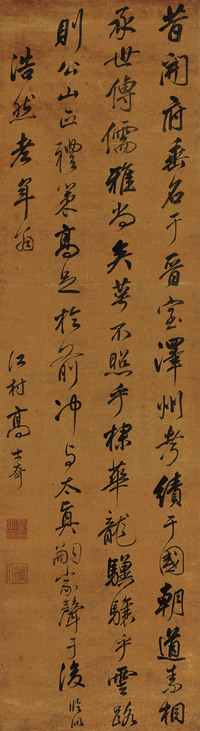 昔開府垂名于晉室澤州考績于國朝道素相
承世傳儒雅尚矣萼不照乎棣華龍驤驤乎雲路
則公山正禮策高足於前沖与太真嗣家聲于後
浩然老年翁
江村高士奇